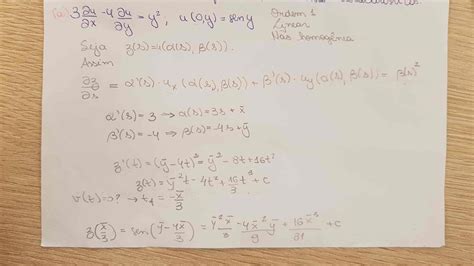 (a) 3 ∂u/∂x - 4 ∂u/∂y = y², u(0,y) = sen y Ordem 1
Linear
Não homogênea
Seja z(s) = u(α(s), β(s)).
Assim
∂z/∂s = α'(s)·u_x(α(s), β(s)) + β'(s)·u_y(α(s), β(s)) = β(s)²
α'(s) = 3 → α(s) = 3s + x̄
β'(s) = -4 → β(s) = -4s + ȳ
z'(t) = (ȳ - 4t)² = ȳ² - 8t + 16t²
z(t) = ȳ²t - 4t² + 16/3 t³ + c
v(t) = 0? → t₁ = -x̄/3
z(x̄/3) = sen(ȳ - 4x̄/3) = ȳ²x̄/3 - 4x̄²ȳ/9 + 16x̄³/81 + c